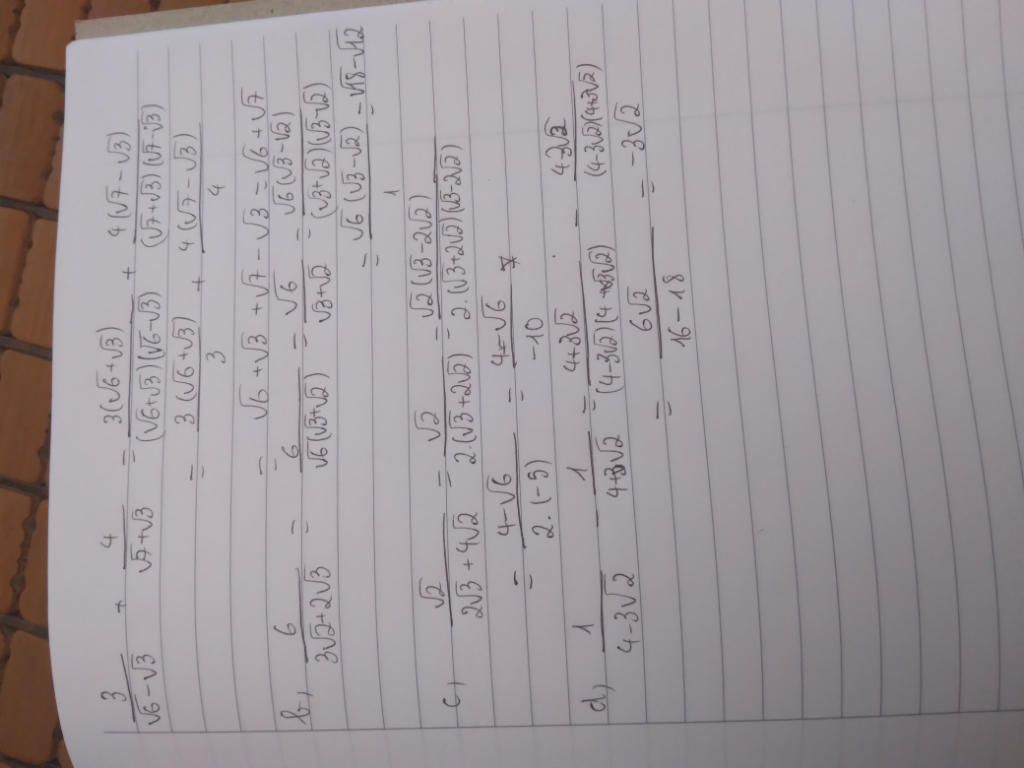 3/(√6-√3) + 4/(√7+√3) = 3(√6+√3)/((√6+√3)(√6-√3)) + 4(√7-√3)/((√7+√3)(√7-√3))
= 3(√6+√3)/3 + 4(√7-√3)/4
= √6+√3+√7-√3=√6+√7
b, 6/(3√2+2√3) = 6/(√6(√3+√2)) = √6/(√3+√2) = √6(√3-√2)/((√3+√2)(√3-√2))
= √6(√3-√2)/1 = √18-√12
c, √2/(2√3+4√2) = √2/(2.(√3+2√2)) = √2(√3-2√2)/(2.(√3+2√2)(√3-2√2))
= 4-√6/2.(-5) = 4-√6/-10
d, 1/(4-3√2) - 1/(4+3√2) = 4+3√2/((4-3√2)(4+3√2)) - 4-3√2/((4-3√2)(4+3√2))
= 6√2/16-18 = -3√2